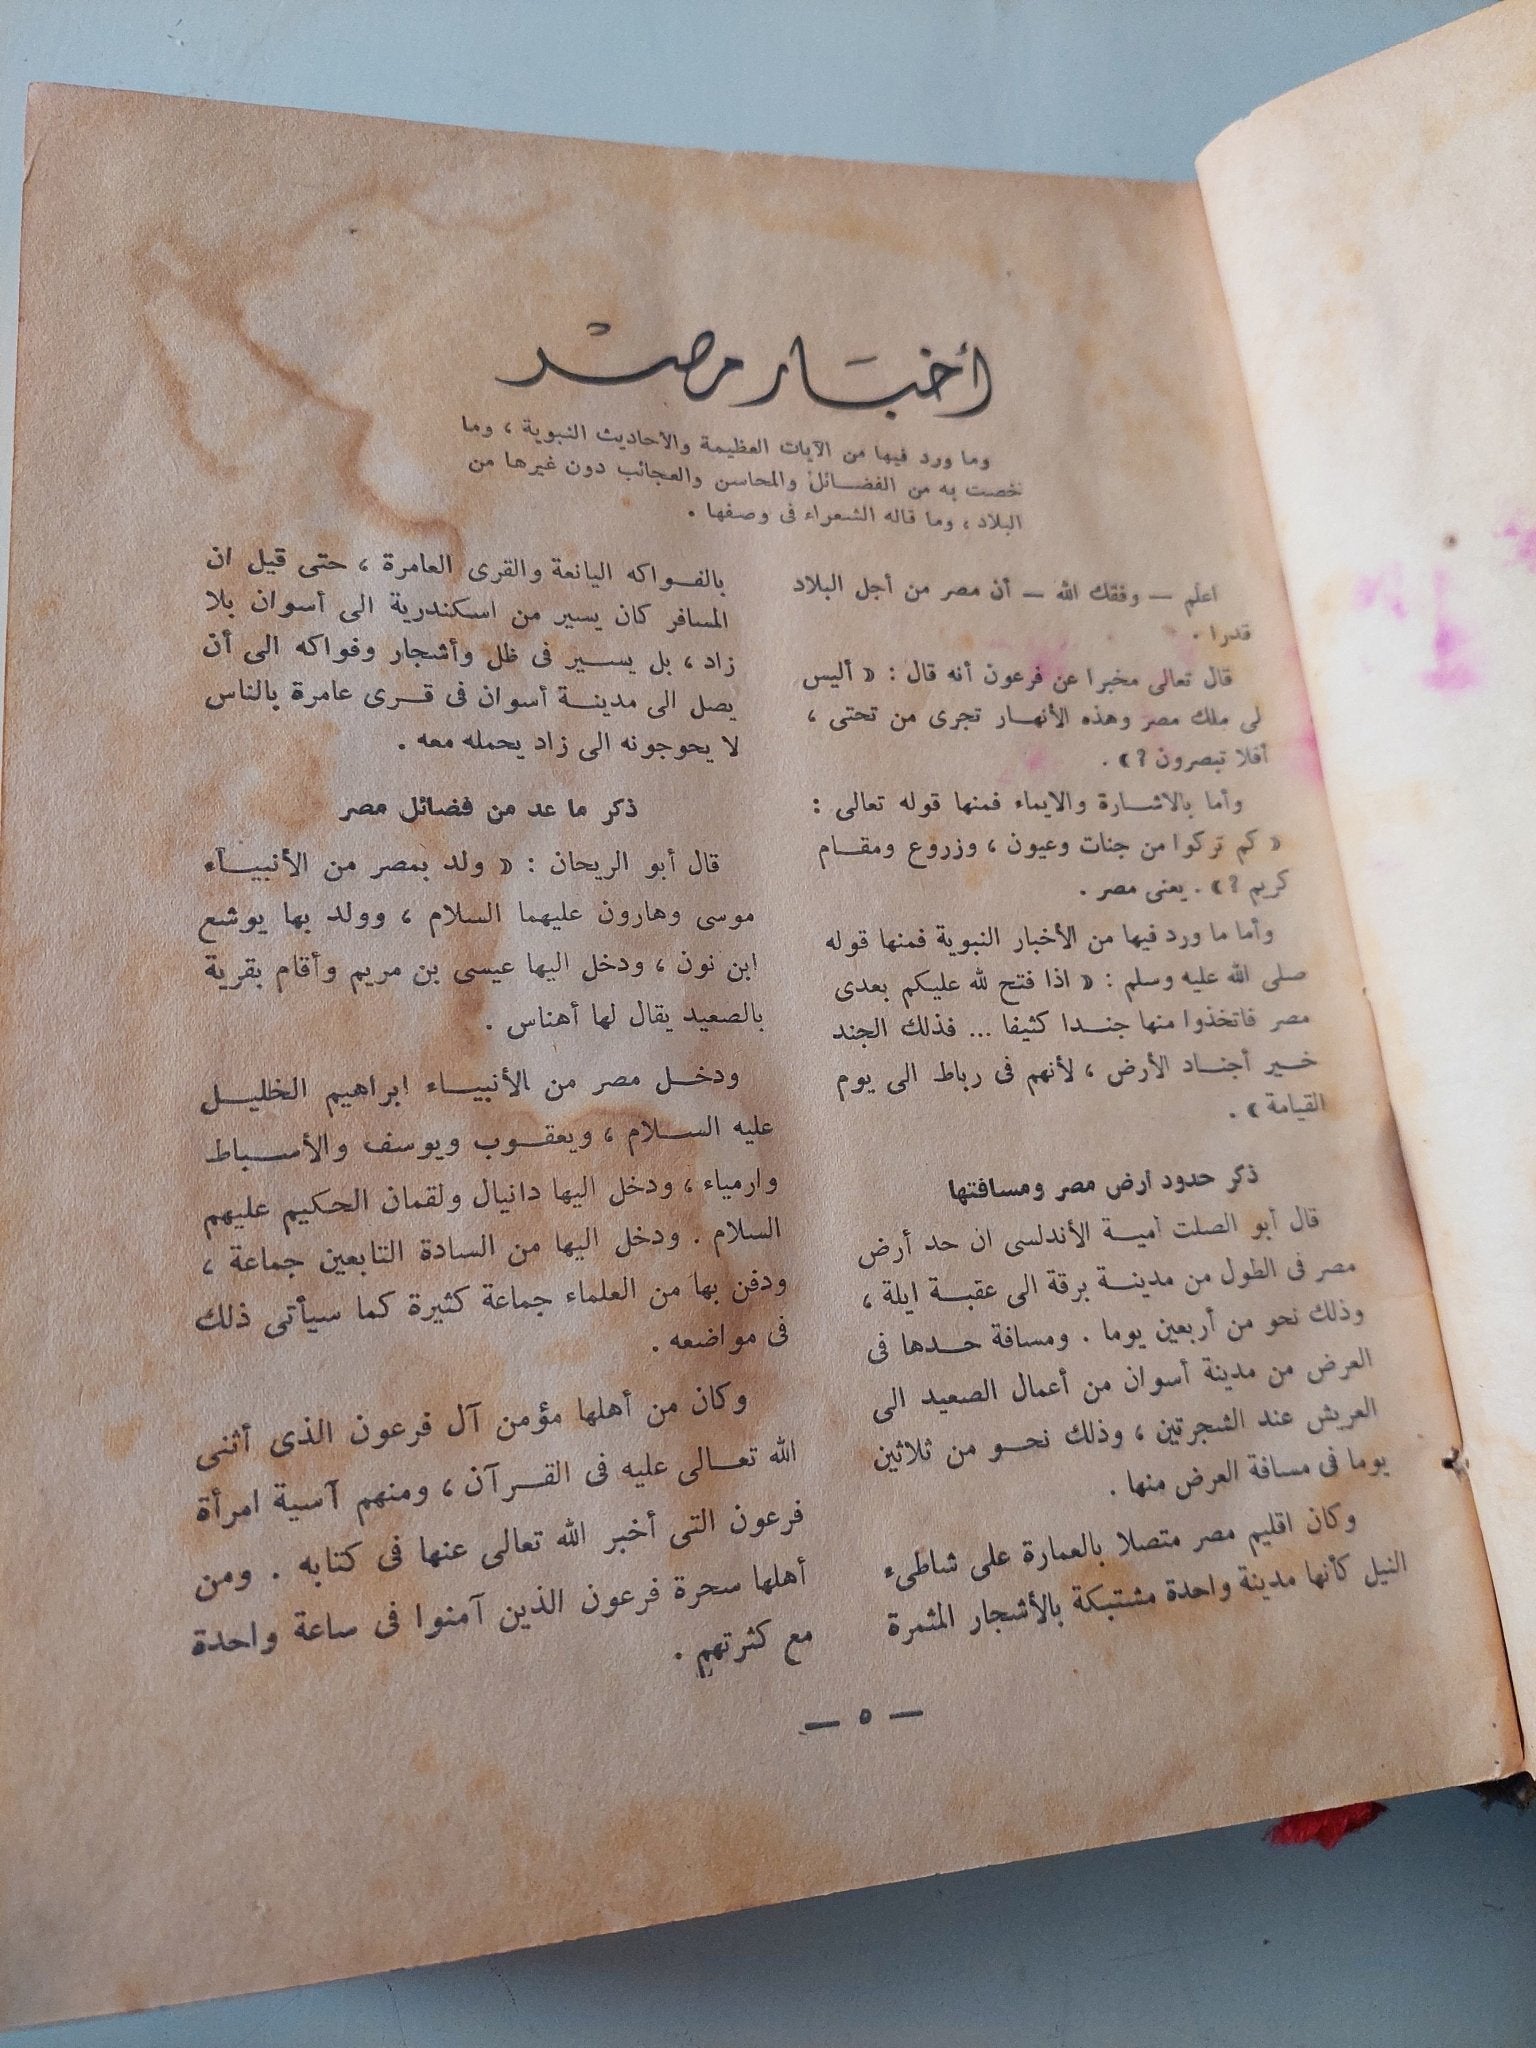 أخبار مصر
وما ورد فيها من الآيات العظيمة والأحاديث النبوية ، وما
خصت به من الفضائل والمحاسن والعجائب دون غيرها من
البلاد ، وما قاله الشعراء فى وصفها .
اعلم — وفقك الله — أن مصر من أجل البلاد
قدرا .
قال تعالى مخبرا عن فرعون أنه قال : « أليس
لى ملك مصر وهذه الأنهار تجرى من تحتى ،
أفلا تبصرون ؟ » .
وأما بالاشارة والايماء فمنها قوله تعالى :
« كم تركوا من جنات وعيون ، وزروع ومقام
كريم ؟ » . يعنى مصر .
وأما ما ورد فيها من الأخبار النبوية فمنها قوله
صلى الله عليه وسلم : « اذا فتح لله عليكم بعدى
مصر فاتخذوا منها جندا كثيفا ... فذلك الجند
خير أجناد الأرض ، لأنهم فى رباط الى يوم
القيامة » .
ذكر حدود أرض مصر ومسافتها
قال أبو الصلت أمية الأندلسى ان حد أرض
مصر فى الطول من مدينة برقة الى عقبة ايلة ،
وذلك نحو من أربعين يوما . ومسافة حدها فى
العرض من مدينة أسوان من أعمال الصعيد الى
العريش عند الشجرتين ، وذلك نحو من ثلاثين
يوما فى مسافة العرض منها .
وكان اقليم مصر متصلا بالعمارة على شاطىء
النيل كأنها مدينة واحدة مشتبكة بالأشجار المثمرة
بالفواكه اليانعة والقرى العامرة ، حتى قيل ان
المسافر كان يسير من اسكندرية الى أسوان بلا
زاد ، بل يسير فى ظل وأشجار وفواكه الى أن
يصل الى مدينة أسوان فى قرى عامرة بالناس
لا يحوجونه الى زاد يحمله معه .
ذكر ما عد من فضائل مصر
قال أبو الريحان : « ولد بمصر من الأنبياء
موسى وهارون عليهما السلام ، وولد بها يوشع
ابن نون ، ودخل اليها عيسى بن مريم وأقام بقرية
بالصعيد يقال لها أهناس .
ودخل مصر من الأنبياء ابراهيم الخليل
عليه السلام ، ويعقوب ويوسف والأسباط
وارمياء ، ودخل اليها دانيال ولقمان الحكيم عليهم
السلام . ودخل اليها من السادة التابعين جماعة ،
ودفن بها من العلماء جماعة كثيرة كما سيأتى ذلك
فى مواضعه .
وكان من أهلها مؤمن آل فرعون الذى أثنى
الله تعالى عليه فى القرآن ، ومنهم آسية امرأة
فرعون التى أخبر الله تعالى عنها فى كتابه . ومن
أهلها سحرة فرعون الذين آمنوا فى ساعة واحدة
مع كثرتهم .
— ٥ —